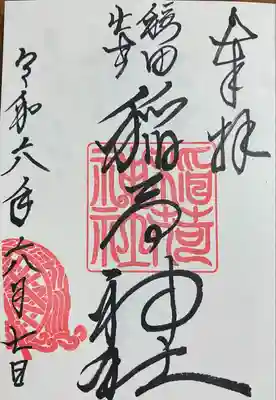 奉拝
出世
稲荷神社
稲荷
神社
令和六年六月七日